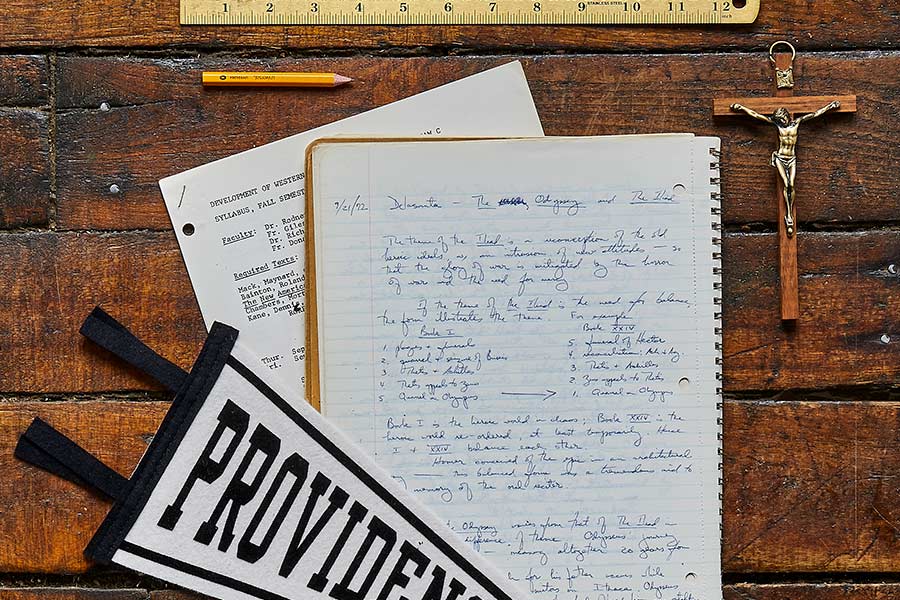 1 2 3 4 5 6 7 8 9 10 11 12
STAINLESS STEEL
DEVELOPMENT OF WESTERN
SYLLABUS, FALL SEMEST
Faculty: Dr. Rodne
Fr. Giles
Dr. Rich
Fr.
Required Texts:
Mack, Maynard,
Bainton, Roland
The New America
Chambers, Mort
Kane, Denni
Thur. Sep
9/21/72 Delasanta - The Odyssey and The Iliad
The theme of the Iliad is a reconception of the old
heroic ideals, as an intrusion of new attitudes - so
that the glory of war is mitigated by the horror
of war and the need for unity
If the theme of the Iliad is the need for balance,
the form illustrates the theme. For example:
Book I Book XXIV
1. plagues + funerals 5. funeral of Hector
2. quarrel + seizure of 4. reconciliation: Ach + Ag.
3. Thetis + Achilles 3. Thetis + Achilles
4. Thetis appeal to Zeus 2. Zeus appeals to Thetis
5. Quarrel on Olympus 1. Quarrel on Olympus
Book I is the heroic world in chaos; Book XXIV is the
heroic world re-ordered, at least temporarily. Hence
I + XXIV balance each other.
Homer conceived of the epic in an architectural
his balanced form is a tremendous aid to
memory of the oral reciter.
Odyssey varies from that of The Iliad in
difference of theme. Odysseus' journey
altogether 20 years from
for his father occurs while
in Ithaca. Odysseus
PROVIDEN